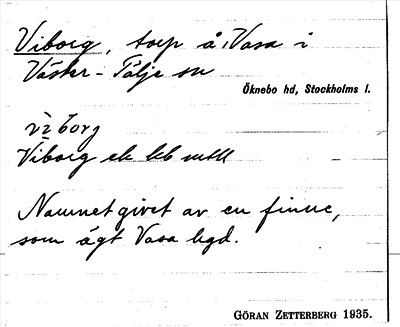 Viborg, torp å Vasa i
Väster-Tälje sn
Öknebo hd, Stockholms l.
vìborg
Viborg ek kb mtll
Namnet givet av en finne,
som ägt Vasa hgd.
GÖRAN ZETTERBERG 1935.